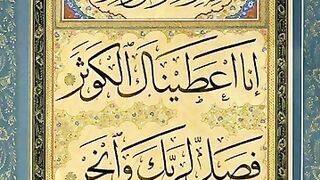 إنا اعطيناك الكوثر
فصل لربك وانحر